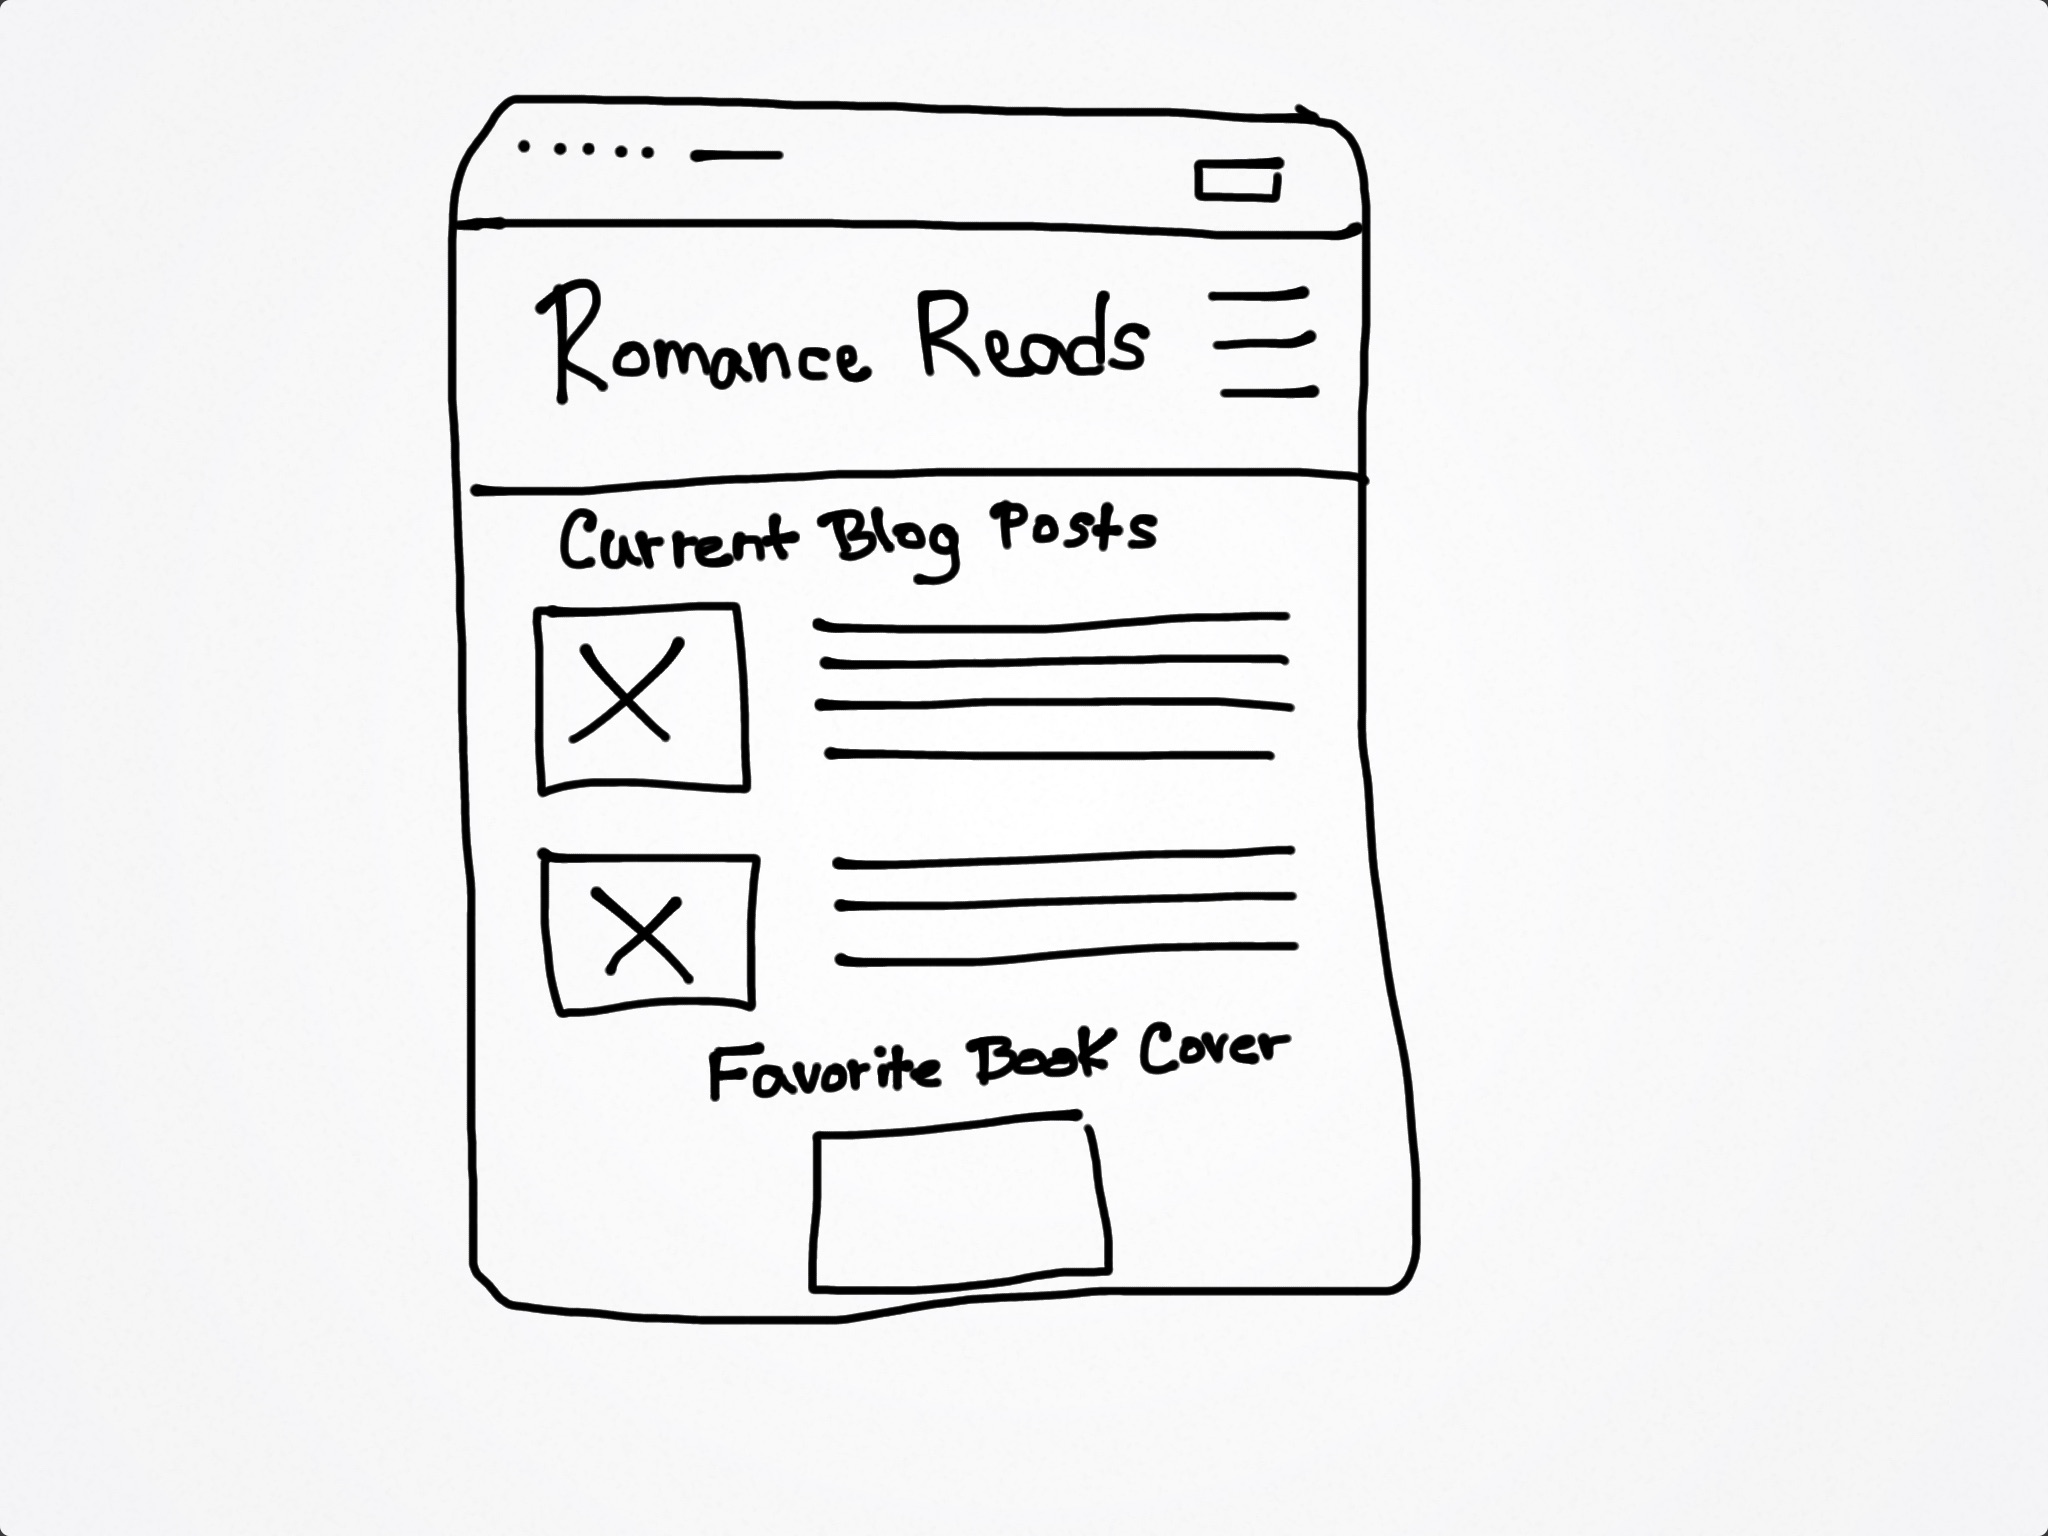 Romance Reads
Current Blog Posts
Favorite Book Cover